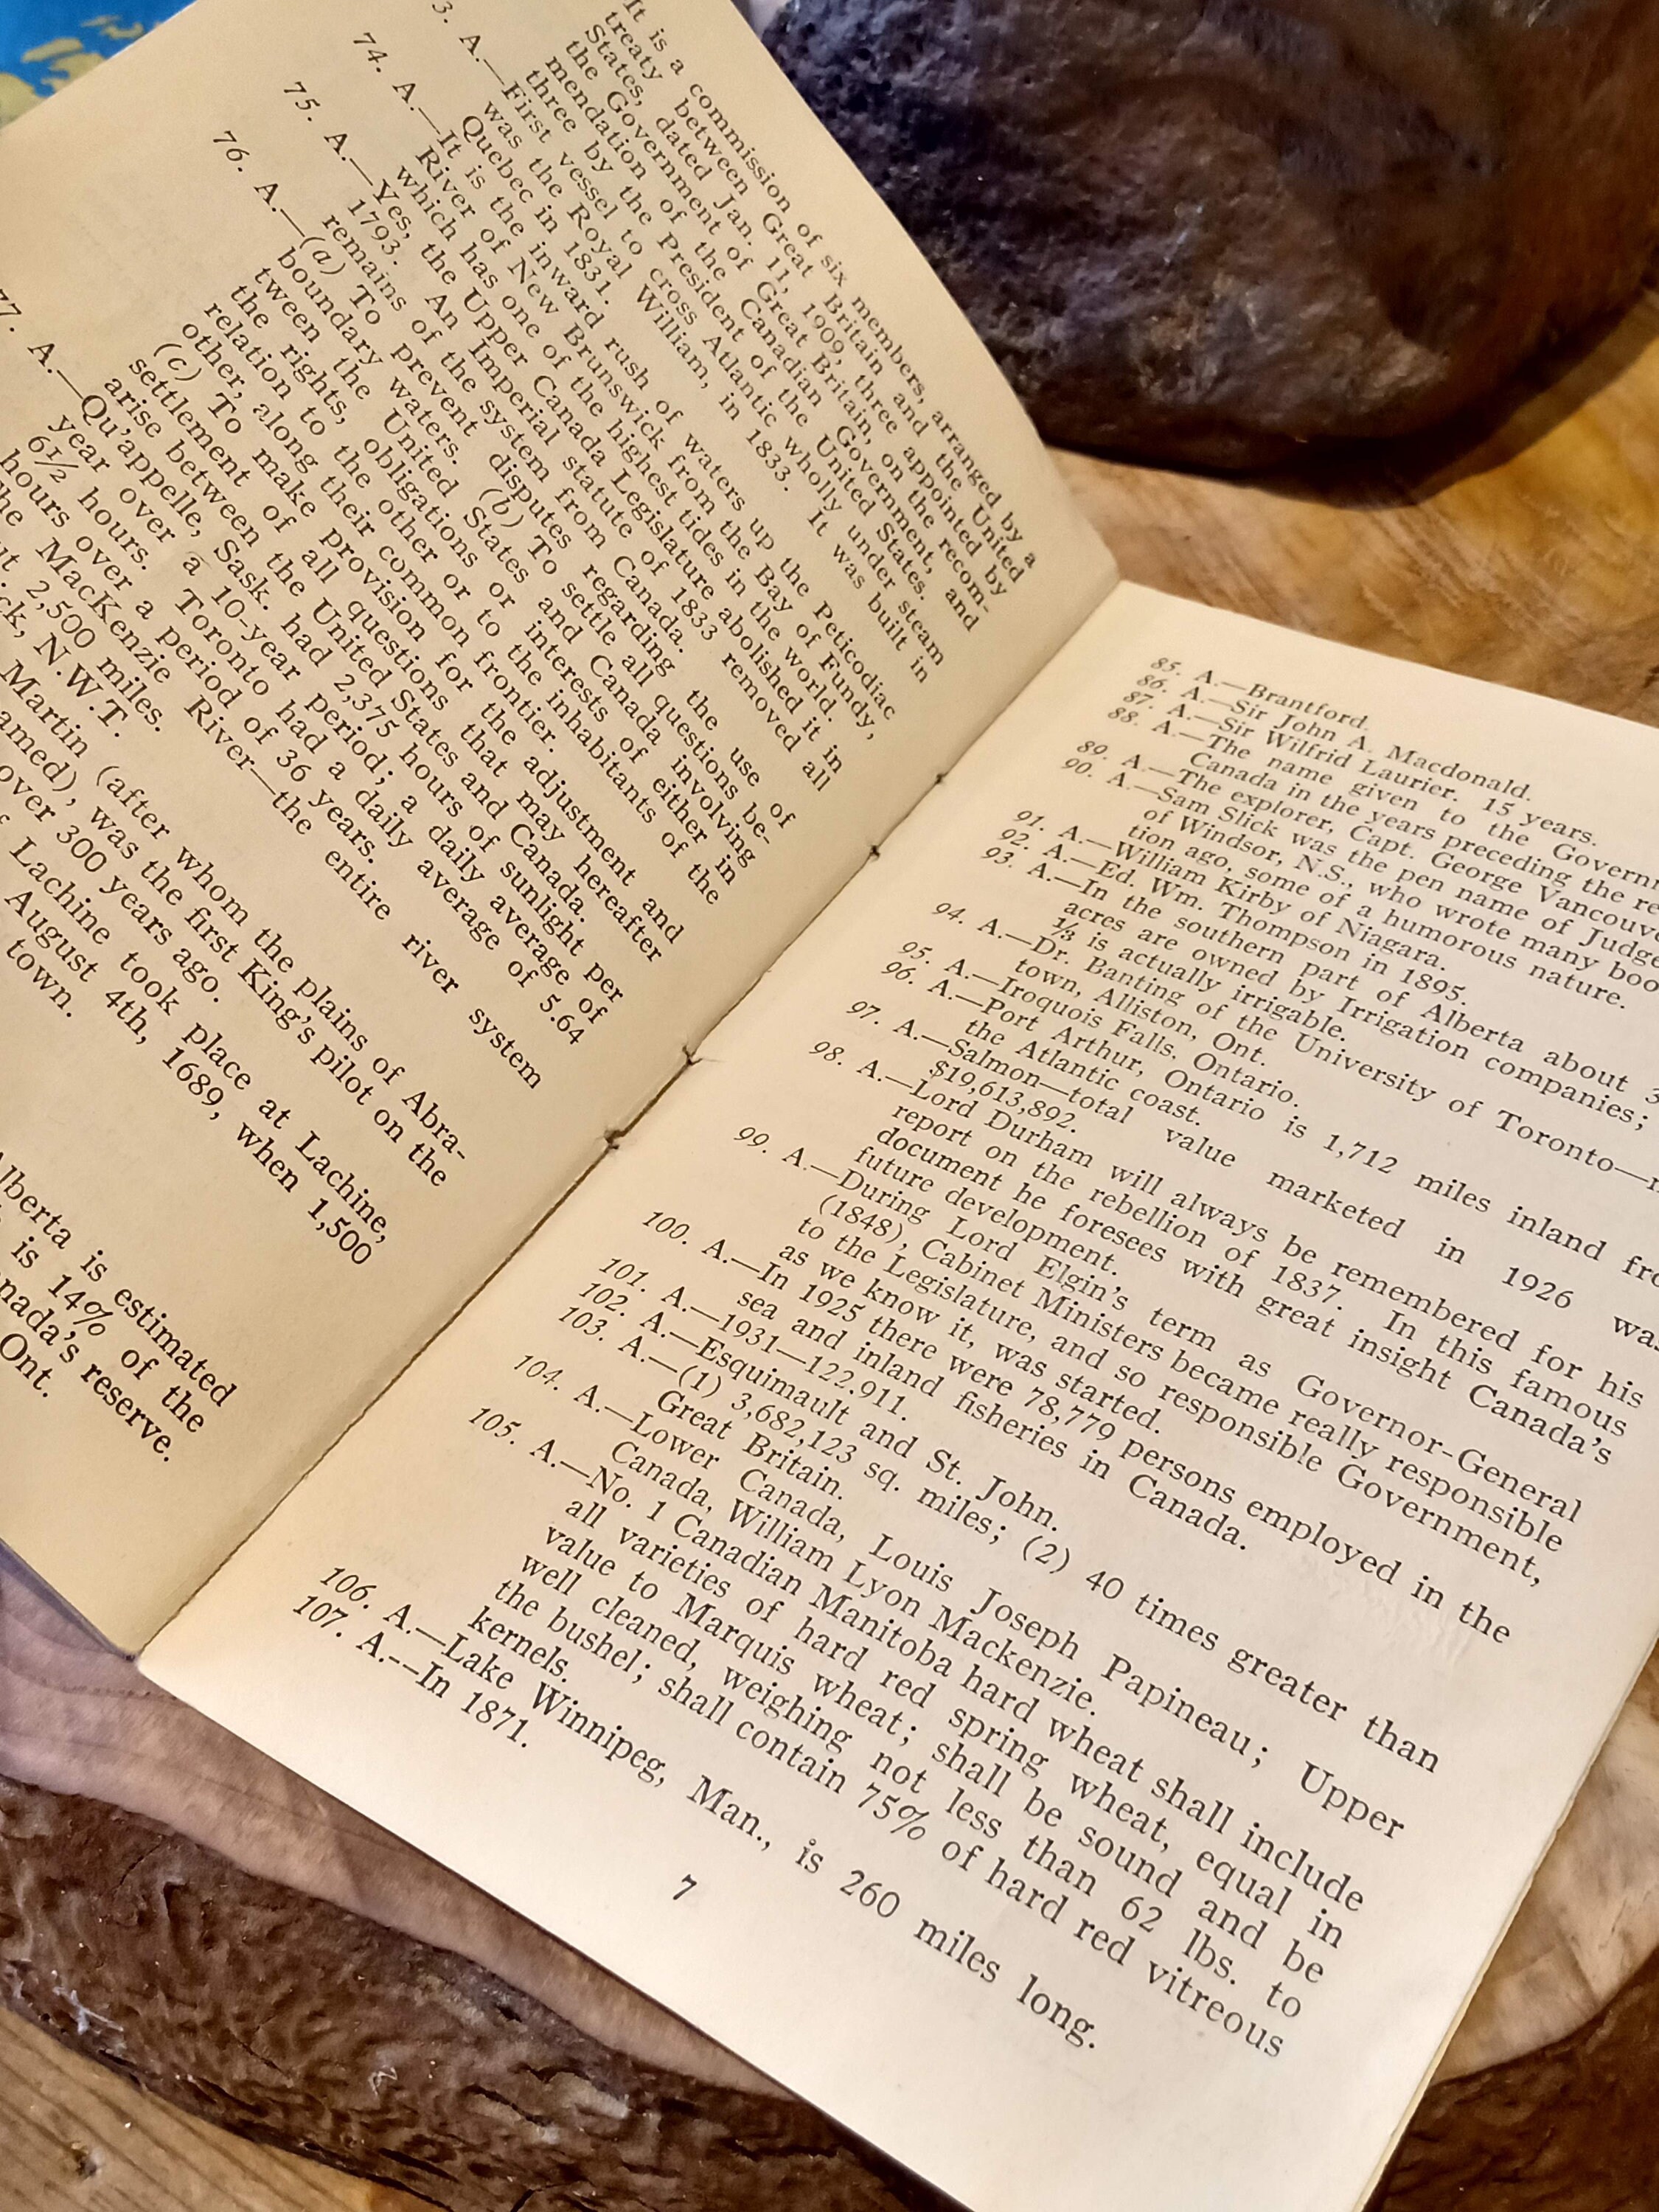 It is a commission of six members, arranged by a
treaty between Great Britain and the United
States, dated Jan. 11, 1909, three appointed by
the Government of Great Britain, on the recom-
mendation of the Canadian Government, and
three by the President of the United States.
3. A.—First vessel to cross Atlantic wholly under steam
was the Royal William, in 1833. It was built in
Quebec in 1831.
74. A.—It is the inward rush of waters up the Peticodiac
River of New Brunswick from the Bay of Fundy,
which has one of the highest tides in the world.
75. A.—Yes, the Upper Canada Legislature abolished it in
1793. An Imperial statute of 1833 removed all
remains of the system from Canada.
76. A.—(a) To prevent disputes regarding the use of
boundary waters. (b) To settle all questions be-
tween the United States and Canada involving
the rights, obligations or interests of either in
relation to the other or to the inhabitants of the
other, along their common frontier.
(c) To make provision for the adjustment and
settlement of all questions that may hereafter
arise between the United States and Canada.
77. A.—Qu'appelle, Sask. had 2,375 hours of sunlight per
year over a 10-year period; a daily average of
6½ hours. Toronto had a daily average of 5.64
hours over a period of 36 years.
MacKenzie River—the entire river system
2,500 miles.
N.W.T.
Martin (after whom the plains of Abra-
amed), was the first King's pilot on the
over 300 years ago.
Lachine took place at Lachine,
August 4th, 1689, when 1,500
town.
Alberta is estimated
is 14% of the
nada's reserve.
Ont.
85. A.—Brantford.
86. A.—Sir John A. Macdonald.
87. A.—Sir Wilfrid Laurier. 15 years.
88. A.—The name given to the Governm
Canada in the years preceding the re
89. A.—The explorer, Capt. George Vancouve
90. A.—Sam Slick was the pen name of Judge
of Windsor, N.S., who wrote many boo
tion ago, some of a humorous nature.
91. A.—William Kirby of Niagara.
92. A.—Ed. Wm. Thompson in 1895.
93. A.—In the southern part of Alberta about 3
acres are owned by Irrigation companies;
⅓ is actually irrigable.
94. A.—Dr. Banting of the University of Toronto—
town, Alliston, Ont.
95. A.—Iroquois Falls, Ontario.
96. A.—Port Arthur, Ontario is 1,712 miles inland fro
the Atlantic coast.
97. A.—Salmon—total value marketed in 1926 was
$19,613,892.
98. A.—Lord Durham will always be remembered for his
report on the rebellion of 1837. In this famous
document he foresees with great insight Canada's
future development.
99. A.—During Lord Elgin's term as Governor-General
(1848), Cabinet Ministers became really responsible
to the Legislature, and so responsible Government,
as we know it, was started.
100. A.—In 1925 there were 78,779 persons employed in the
sea and inland fisheries in Canada.
101. A.—1931—122.911.
102. A.—Esquimault and St. John.
103. A.—(1) 3,682,123 sq. miles; (2) 40 times greater than
Great Britain.
104. A.—Lower Canada, Louis Joseph Papineau; Upper
Canada, William Lyon Mackenzie.
105. A.—No. 1 Canadian Manitoba hard wheat shall include
all varieties of hard red spring wheat, equal in
value to Marquis wheat; shall be sound and be
well cleaned, weighing not less than 62 lbs. to
the bushel; shall contain 75% of hard red vitreous
kernels.
106. A.—Lake Winnipeg, Man., is 260 miles long.
107. A.--In 1871.
7